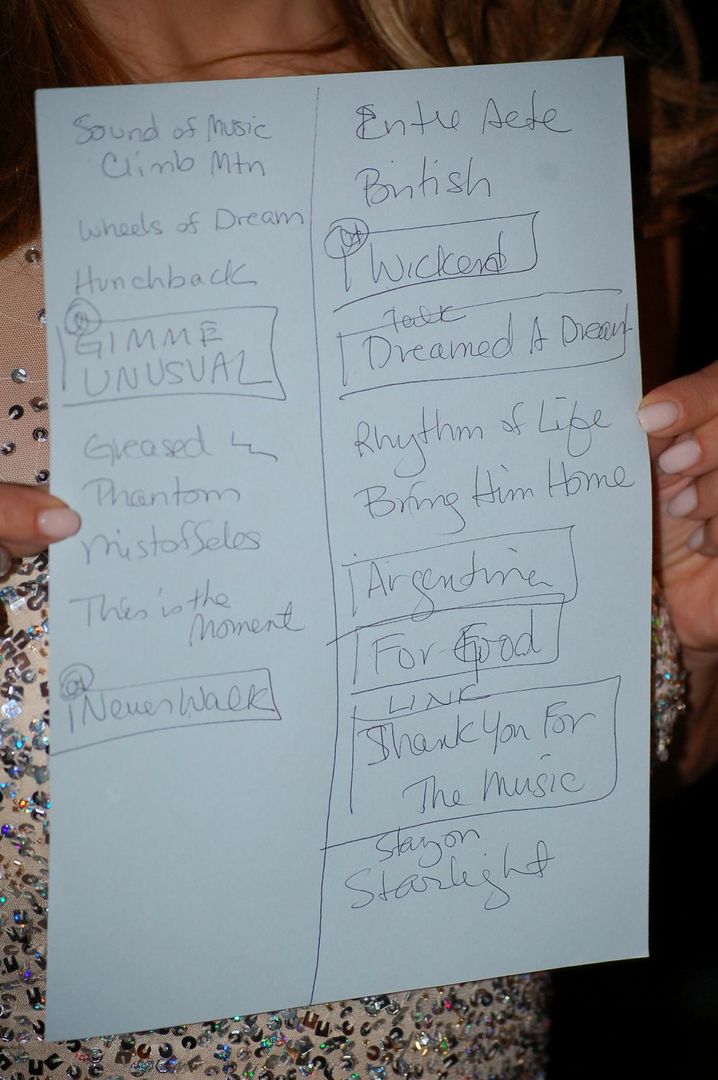 Sound of Music
Climb Mtn
Wheels of Dream
Hunchback
GIMME
UNUSUAL
Greased
Phantom
Mistoffelos
This is the
Moment
Never Walk
Entre Acte
British
Wicked
Talk
Dreamed A Dream
Rhythm of Life
Bring Him Home
Argentina
For Good
LINK
Thank You For
The Music
Stay on
Starlight